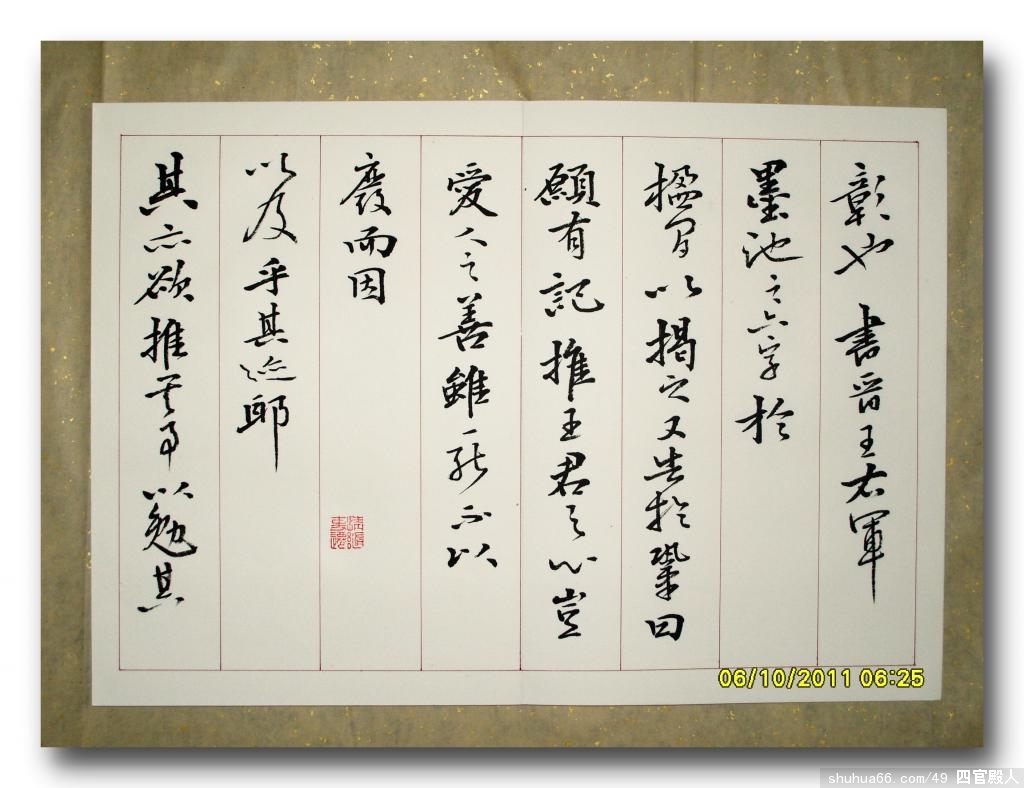 彰也書晉王右軍
墨池之六字於
楹間以揭之又告於鞏曰
願有記推王君之心豈
愛人之善雖一能不以
廢而因
以及乎其迹耶
其亦欲推其事以勉其
06/10/2011 06:25
shuhua66.com/49 四官殿人